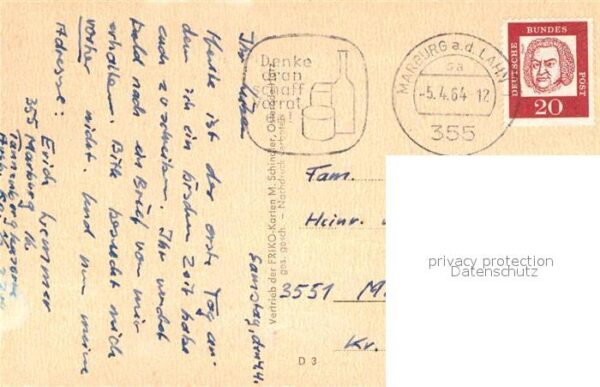 Samstag, den 4.4.
Ihr Lieben
Heute ist der erste Tag an
dem ich ein bißchen Zeit habe
euch zu schreiben. Ihr werdet
bald noch ein Brief von mir
erhalten. Bitte besucht mich
vorher nicht. Und nun meine
Adresse:
Erich Lemmer
355 Marburg
Vertrieb der FRIKO-Karten M. Schindler,
ges. gesch. – Nachdruck
D 3
Denke
dran
schaff
Vorrat
an!
MARBURG a.d. LAHN
-5.4.64 12
355
DEUTSCHE
BUNDES
POST
20
Fam.
Heinr. u
3551
Kr.
privacy protection
Datenschutz